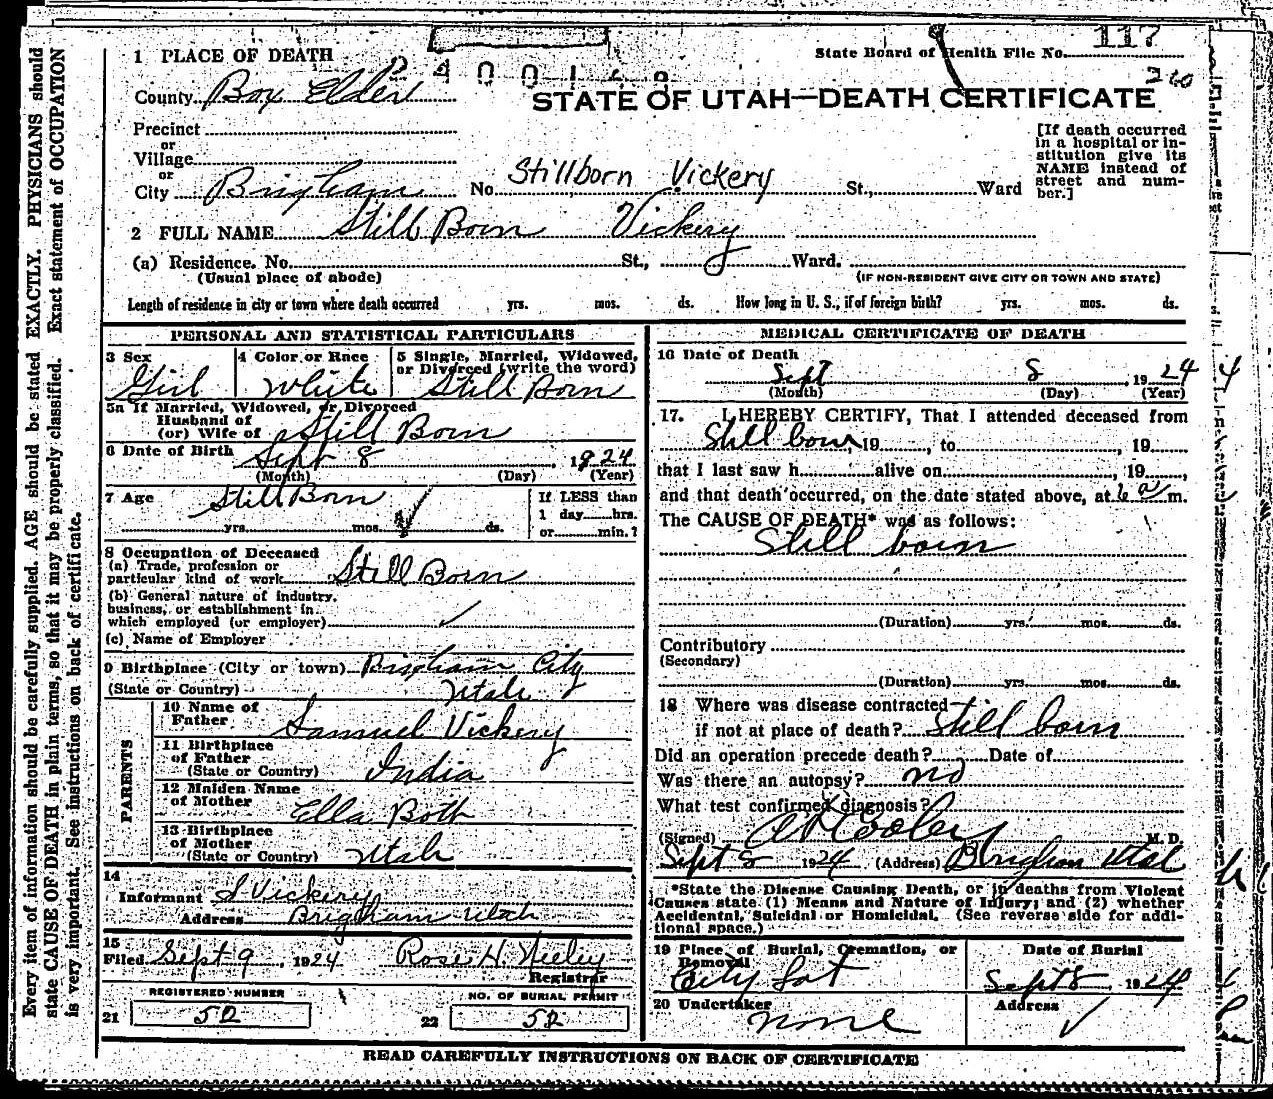 117
State Board of Health File No.
1 PLACE OF DEATH
2400148
260
County Box Elder
STATE OF UTAH—DEATH CERTIFICATE
Precinct
or
Village
or
City Brigham No. Stillborn Vickery St., Ward
[If death occurred
in a hospital or in-
stitution give its
NAME instead of
street and num-
ber.]
2 FULL NAME Still Born Vickery
(a) Residence. No. St., Ward.
(Usual place of abode) (IF NON-RESIDENT GIVE CITY OR TOWN AND STATE)
Length of residence in city or town where death occurred yrs. mos. ds. How long in U. S., if of foreign birth? yrs. mos. ds.
PERSONAL AND STATISTICAL PARTICULARS
3 Sex 4 Color or Race 5 Single, Married, Widowed,
or Divorced (write the word)
Girl White Still Born
5a If Married, Widowed, or Divorced
Husband of
(or) Wife of Still Born
6 Date of Birth Sept 8, 1924
(Month) (Day) (Year)
7 Age Still Born If LESS than
1 day hrs.
yrs. mos. ds. or min.?
8 Occupation of Deceased
(a) Trade, profession or
particular kind of work Still Born
(b) General nature of industry,
business, or establishment in
which employed (or employer)
(c) Name of Employer
9 Birthplace (City or town) Brigham City
(State or Country) Utah
PARENTS
10 Name of
Father Samuel Vickery
11 Birthplace
of Father
(State or Country) India
12 Maiden Name
of Mother Ella Bott
13 Birthplace
of Mother
(State or Country) Utah
14
Informant S Vickery
Address Brigham Utah
15
Filed Sept 9, 1924 Rose H. Neeley
Registrar
REGISTERED NUMBER NO. OF BURIAL PERMIT
21 52 22 52
MEDICAL CERTIFICATE OF DEATH
16 Date of Death
Sept 8, 1924
(Month) (Day) (Year)
17. I HEREBY CERTIFY, That I attended deceased from
Still born, 19, to, 19
that I last saw h alive on, 19,
and that death occurred, on the date stated above, at 6 a m.
The CAUSE OF DEATH* was as follows:
Still born
(Duration) yrs. mos. ds.
Contributory
(Secondary)
(Duration) yrs. mos. ds.
18 Where was disease contracted
if not at place of death? Still born
Did an operation precede death? Date of
Was there an autopsy? no
What test confirmed diagnosis?
(Signed) A D Cooley M. D.
Sept 8 1924 (Address) Brigham Utah
*State the Disease Causing Death, or in deaths from Violent
Causes state (1) Means and Nature of Injury; and (2) whether
Accidental, Suicidal or Homicidal. (See reverse side for addi-
tional space.)
19 Place of Burial, Cremation, or
Removal Date of Burial
City Lot Sept 8, 1924
20 Undertaker Address
none
READ CAREFULLY INSTRUCTIONS ON BACK OF CERTIFICATE
Every item of information should be carefully supplied. AGE should be stated EXACTLY. PHYSICIANS should
state CAUSE OF DEATH in plain terms, so that it may be properly classified. Exact statement of OCCUPATION
is very important. See instructions on back of certificate.